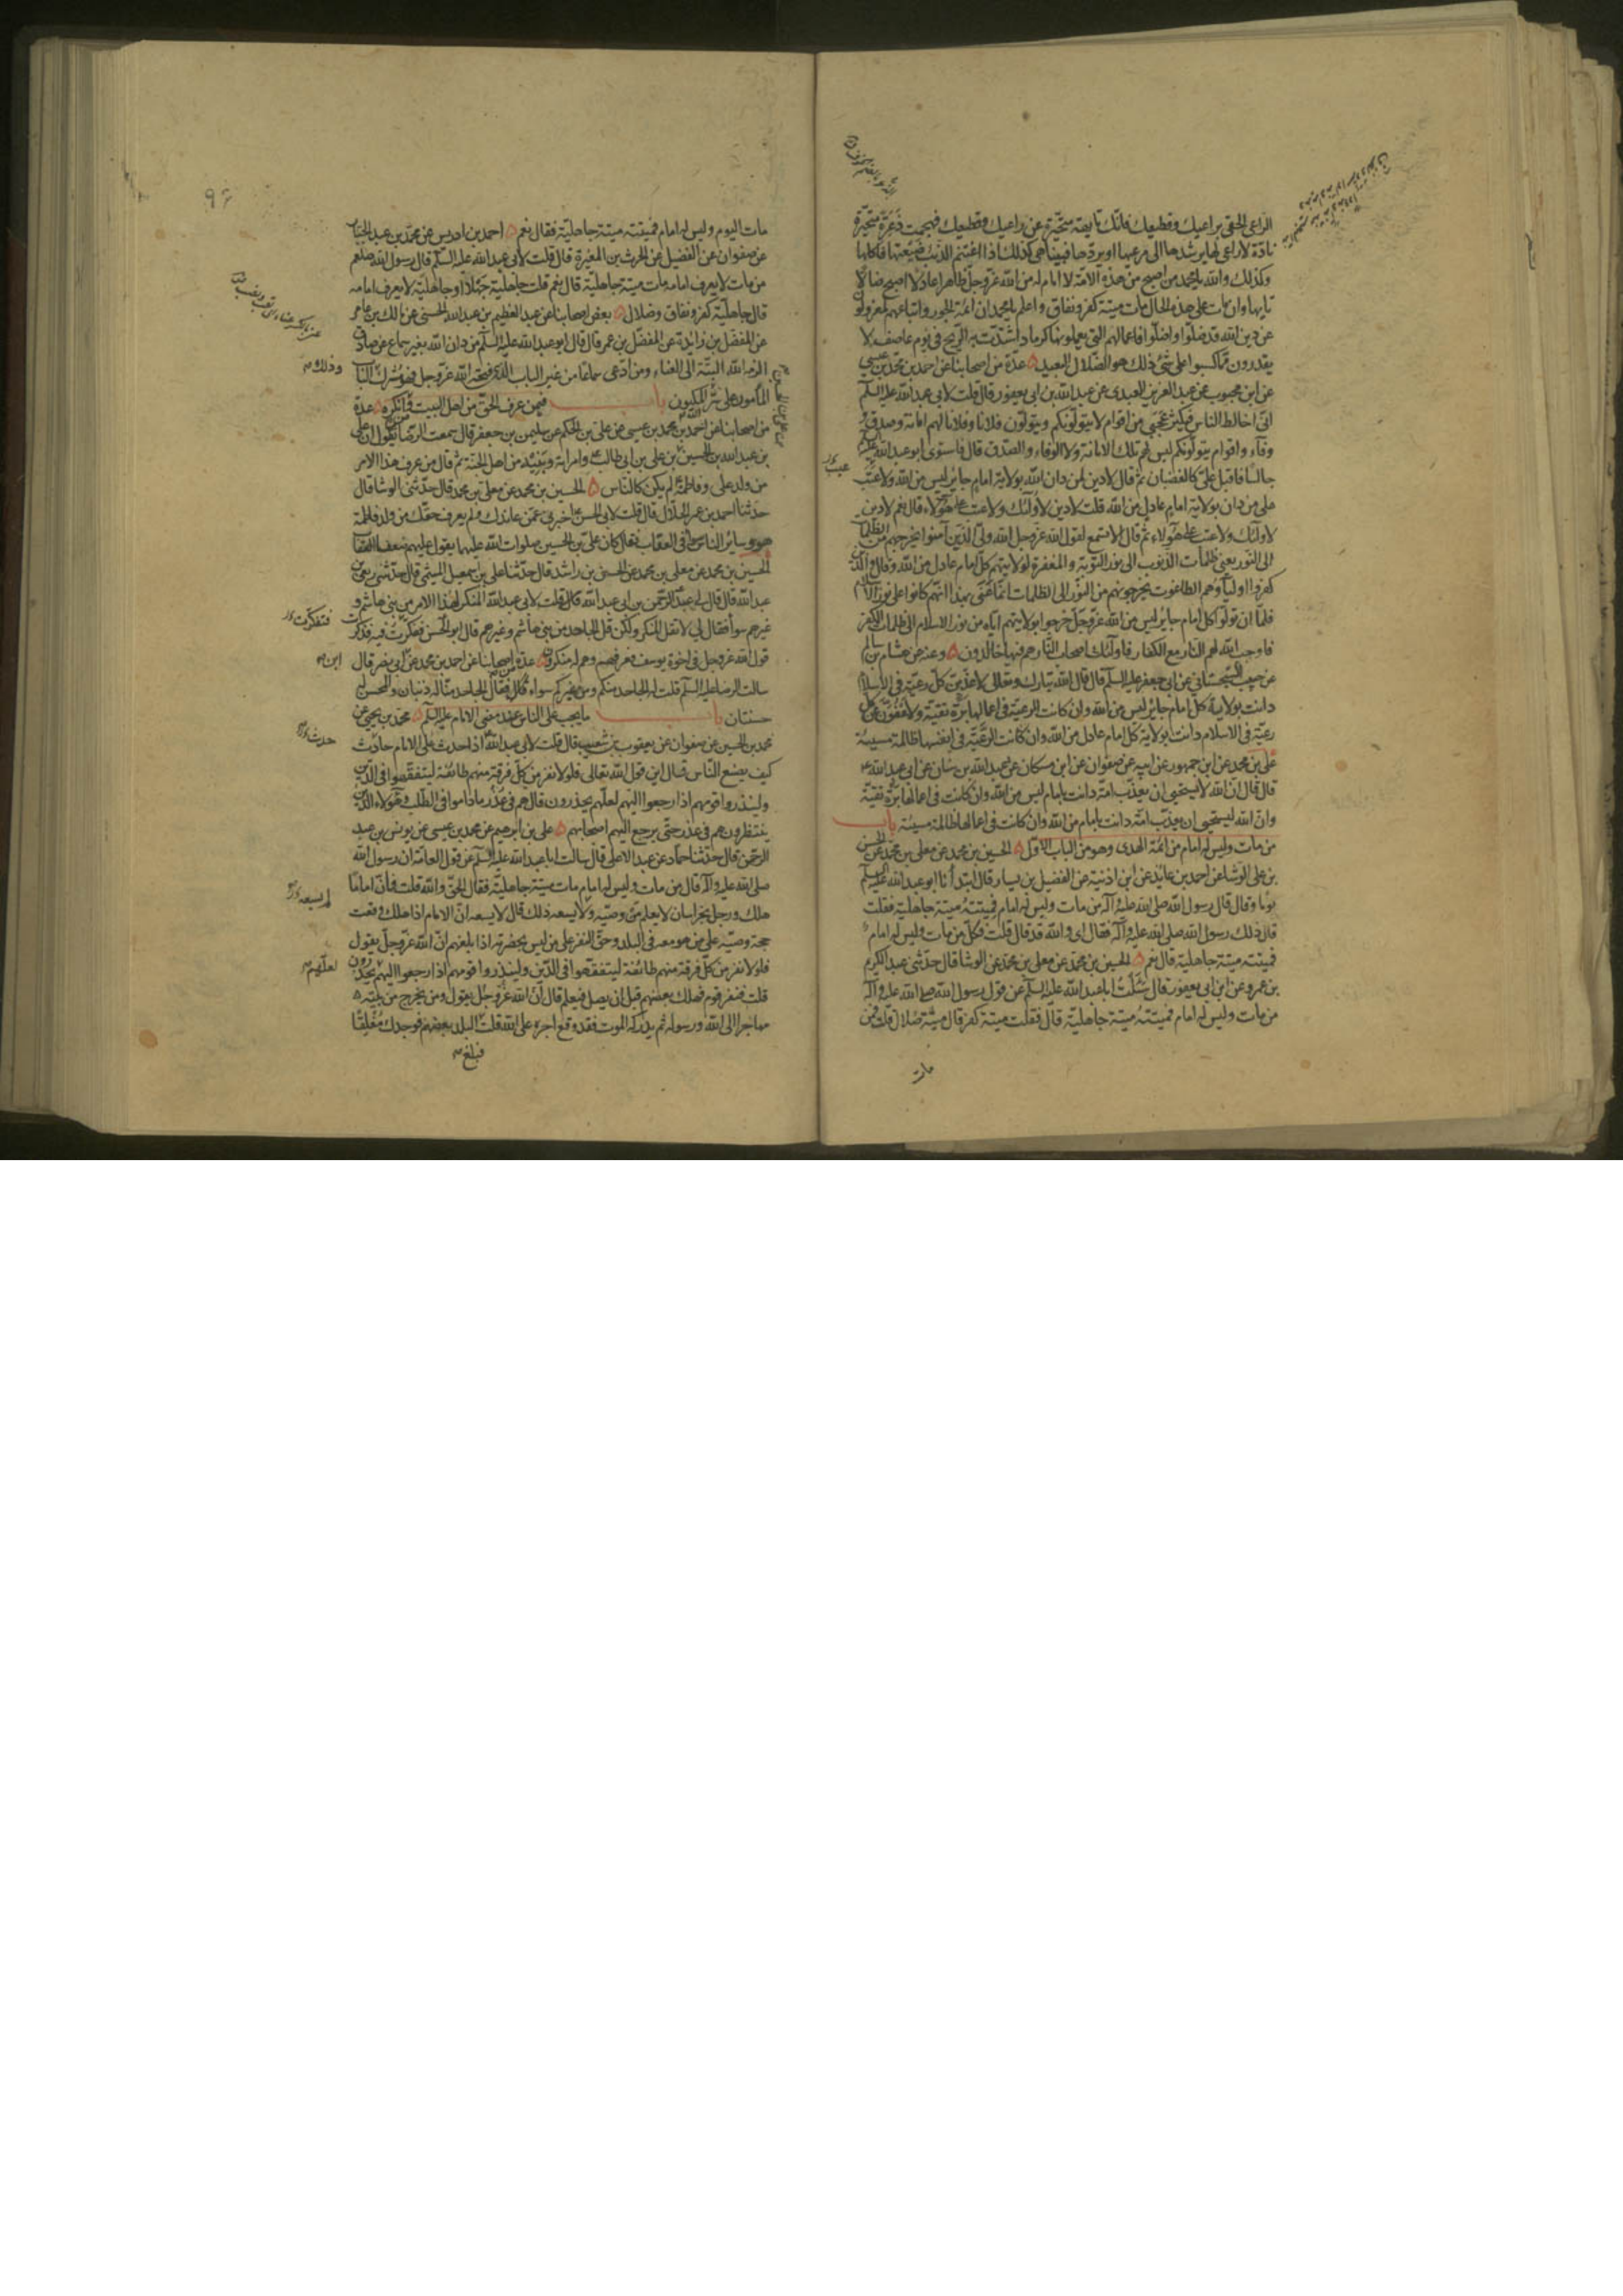 الراعي الحقي براعيك وقطيعك فانك تايهة متحيّرة عن راعيك وقطيعك فهجمت ذعرة متحيّرة
نادّة لا راعي لها يرشدها الى مرعيها او يردّها فبينا هي كذلك اذا اغتنم الذئب ضيعتها فاكلها
وكذلك والله يا محمد من اصبح من هذه الامّة لا امام له من الله عزّ وجلّ ظاهرا عادلا اصبح ضالّا
تايها وان مات على هذه الحال مات ميتة كفر ونفاق واعلم يا محمد ان ائمة الجور واتباعهم لمعزولون
عن دين الله قد ضلّوا واضلّوا فاعمالهم التي يعملونها كرماد اشتدّت به الريح في يوم عاصف لا
يقدرون ممّا كسبوا على شئ ذلك هو الضّلال البعيد ٥ عدّة من اصحابنا عن احمد بن محمّد بن عيسى
عن ابن محبوب عن عبد العزيز العبدى عن عبد الله بن ابى يعفور قال قلت لابى عبد الله عليه السلم
انّى اخالط الناس فيكثر عجبى من اقوام لا يتولّونكم ويتولّون فلانا وفلانا لهم امانة وصدق و
وفاء واقوام يتولّونكم ليس لهم تلك الامانة ولا الوفاء والصّدق قال فاستوى ابو عبد الله عليه السلم
جالسًا فاقبل علىّ كالغضبان ثمّ قال لا دين لمن دان الله بولاية امام جاير ليس من الله ولا عتب
على من دان بولاية امام عادل من الله قلت لا دين لاولئك ولا عتب على هؤلاء قال نعم لا دين
لاولئك ولا عتب على هؤلاء ثمّ قال الا تسمع لقول الله عزّ وجل الله ولىّ الّذين آمنوا يخرجهم من الظلمات
الى النّور يعنى ظلمات الذّنوب الى نور التوبة والمغفرة لولايتهم كلّ امام عادل من الله وقال والّذين
كفروا اولياؤهم الطاغوت يخرجونهم من النّور الى الظلمات انّما عنى بهذا انّهم كانوا على نور الاسلام
فلمّا ان تولّوا كلّ امام جاير ليس من الله عزّ وجلّ خرجوا بولايتهم ايّاه من نور الاسلام الى ظلمات الكفر
فاوجب الله لهم النّار مع الكفار فاولئك اصحاب النّار هم فيها خالدون ٥ وعنه عن هشام بن سالم
عن حبيب السّجستانى عن ابى جعفر عليه السلم قال قال الله تبارك وتعالى لاعذّبنّ كلّ رعيّة في الاسلام
دانت بولاية كلّ امام جاير ليس من الله وان كانت الرعيّة فى اعمالها برّة تقيّة ولاعفونّ عن كلّ
رعيّة في الاسلام دانت بولاية كلّ امام عادل من الله وان كانت الرعيّة فى انفسها ظالمة مسيئة
على بن محمد عن ابن جمهور عن ابيه عن صفوان عن ابن مسكان عن عبد الله بن سنان عن ابى عبد الله ع
قال قال انّ الله لا يستحيى ان يعذّب امّة دانت بامام ليس من الله وان كانت فى اعمالها برّة تقيّة
وانّ الله ليستحيى ان يعذّب امّة دانت بامام من الله وان كانت فى اعمالها ظالمة مسيئة باب
من مات وليس له امام من ائمّة الهدى وهو من الباب الاوّل ٥ الحسين بن محمد عن معلى بن محمّد عن الحسن
بن على الوشا عن احمد بن عايذ عن ابن اذينة عن الفضيل بن يسار قال ابتدأنا ابو عبد الله عليه السلم
يومًا وقال قال رسول الله صلى الله عليه وآله من مات وليس له امام فميتته ميتة جاهلية فقلت
قال ذلك رسول الله صلى الله عليه وآله فقال اى والله قد قال قلت فكلّ من مات وليس له امام
فميتته ميتة جاهلية قال نعم ٥ الحسين بن محمّد عن معلى بن محمّد عن الوشا قال حدّثنى عبد الكريم
بن عمرو عن ابن ابى يعفور قال سئلت ابا عبد الله عليه السلم عن قول رسول الله صلى الله عليه وآله
من مات وليس له امام فميتته ميتة جاهليّة قال فقلت ميتة كفر قال ميتة ضلال قلت فمن
مات
٩٤
مات اليوم وليس له امام فميتته ميتة جاهليّة فقال نعم ٥ احمد بن ادريس عن محمّد بن عبد الجبّار
عن صفوان عن الفضيل عن الحرث بن المغيرة قال قلت لابى عبد الله عليه السلم قال رسول الله صلعم
من مات لا يعرف امامه مات ميتة جاهلية قال نعم قلت جاهلية جهلاء او جاهليّة لا يعرف امامه
قال جاهليّة كفر ونفاق وضلال ٥ بعض اصحابنا عن عبد العظيم بن عبد الله الحسنى عن مالك بن عامر
عن المفضّل بن زائدة عن المفضّل بن عمر قال قال ابو عبد الله عليه السلم من دان الله بغير سماع عن صادق
الزمه الله البتّة الى العناء ومن ادّعى سماعًا من غير الباب الّذى فتحه الله عزّ وجل فهو مشرك
وذلك الباب
المأمون على سرّ الله المكنون باب فيمن عرف الحقّ من اهل البيت ومن انكره ٥ عدّة
من اصحابنا عن احمد بن محمد بن عيسى عن على بن الحكم عن سليمن بن جعفر قال سمعت الرضا يقول انّ على
بن عبد الله بن الحسين بن على بن ابى طالب ع وامراته وبنيه من اهل الجنة ثم قال من عرف هذا الامر
من ولد على وفاطمة ع لم يكن كالنّاس ٥ الحسين بن محمد عن معلى بن محمد قال حدّثنى الوشا قال
حدّثنا احمد بن عمر الحلّال قال قلت لابى الحسن ع اخبرنى عمّن عاندك ولم يعرف حقّك من ولد فاطمة
هو وساير الناس سواء فى العقاب فقال كان علىّ بن الحسين صلوات الله عليهما يقول عليهم ضعفا العقاب
الحسين بن محمد عن معلى بن محمد عن الحسن بن راشد قال حدّثنا على بن اسمعيل الميثمى قال حدّثنى ربعى بن
عبد الله قال قال لى عبد الرّحمن بن ابى عبد الله قال قلت لابى عبد الله المنكر لهذا الامر من بنى هاشم و
غيرهم سواء فقال لى لا تقل المنكر ولكن قل الجاحد من بنى هاشم وغيرهم قال ابو الحسن فتفكرت فيه فذكرت
قول الله عزّ وجل فى اخوة يوسف فعرفهم وهم له منكرون ٥ عدّة من اصحابنا عن احمد بن محمد عن ابن ابى نصر قال
سالت الرضا عليه السلم قلت له الجاحد منكم ومن غيركم سواء فقال الجاحد منّا له ذنبان والمحسن له
حسنتان باب ما يجب على الناس عند مضى الامام عليه السلم ٥ محمّد بن يحيى عن
محمد بن الحسين عن صفوان عن يعقوب بن شعيب قال قلت لابى عبد الله اذا حدث على الامام حادث
كيف يصنع النّاس قال اين قول الله تعالى فلولا نفر من كلّ فرقة منهم طائفة ليتفقّهوا فى الدّين
ولينذروا قومهم اذا رجعوا اليهم لعلّهم يحذرون قال هم فى عذر ماداموا فى الطلب وهؤلاء الذين
ينتظرونهم فى عذر حتّى يرجع اليهم اصحابهم ٥ على بن ابرهيم عن محمد بن عيسى عن يونس بن عبد
الرّحمن قال حدّثنا حمّاد عن عبد الاعلى قال سالت ابا عبد الله عليه السلم عن قول العامّة ان رسول الله
صلى الله عليه وآله قال من مات وليس له امام مات ميتة جاهليّة فقال الحقّ والله قلت فانّ امامًا
هلك ورجل بخراسان لا يعلم من وصيّه ولا يسعه ذلك قال لا يسعه انّ الامام اذا هلك وقعت
لم يسعه
حجة وصيّه على من هو معه فى البلد وحقّ النفر على من ليس بحضرته اذا بلغهم انّ الله عزّ وجلّ يقول
فلولا نفر من كلّ فرقة منهم طائفة ليتفقّهوا فى الدّين ولينذروا قومهم اذا رجعوا اليهم لعلّهم يحذرون
قلت فنفر قوم فهلك بعضهم قبل ان يصل فيعلم قال انّ الله عزّ وجلّ يقول ومن يخرج من بيته
مهاجرا الى الله ورسوله ثم يدركه الموت فقد وقع اجره على الله قلت فبلغ البلد بعضهم فوجدك مغلقًا